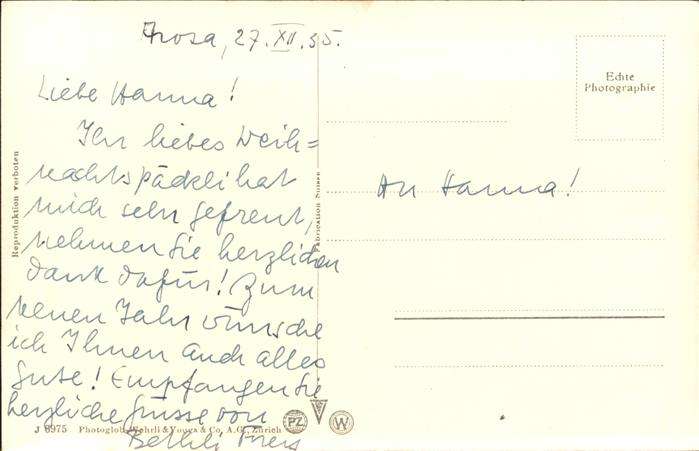 Arosa, 27. XII. 55.
Liebe Hanna!
Ihr liebes Weih=
nachtspäckli hat
mich sehr gefreut,
nehmen Sie herzlichen
Dank dafür! Zum
neuen Jahr wünsche
ich Ihnen auch alles
Gute! Empfangen Sie
herzliche Grüsse von
Bethli Frey
An Hanna!
Echte
Photographie
Reproduktion verboten
Fabrication Suisse
J 6975 Photoglob-Wehrli & Vouga & Co. A.G., Zürich
PZ
W